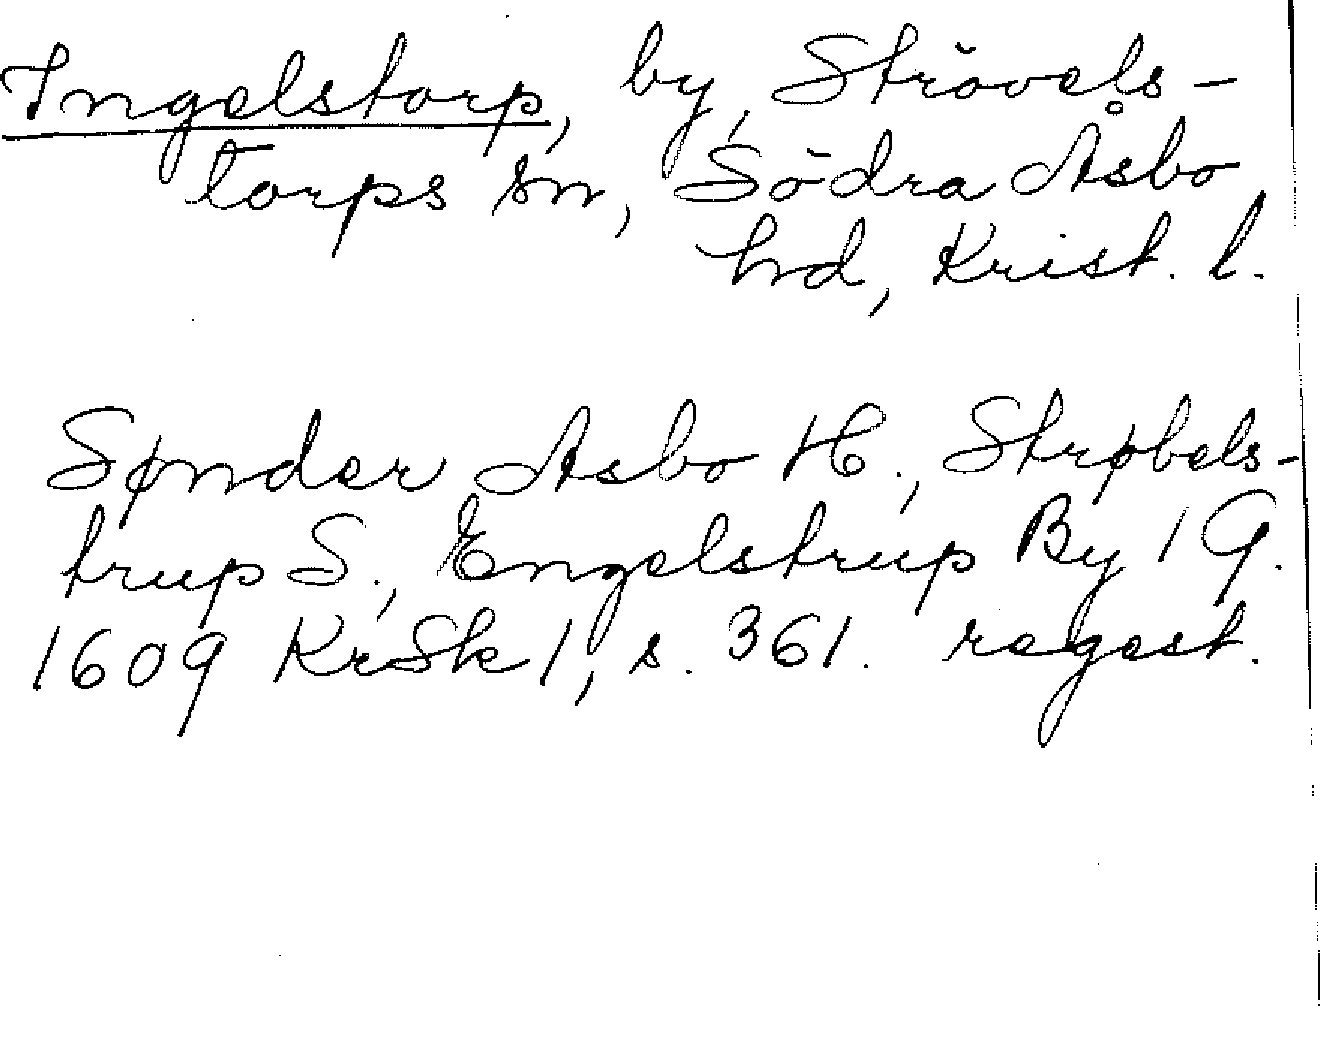 Ingelstorp, by, Strövels-
torps sn, Södra Åsbo
hd, Krist. l.
Sønder Asbo H., Strøbels-
trup S., Engelstrup By 1 G.
1609 KrSk 1, s. 361. regest.